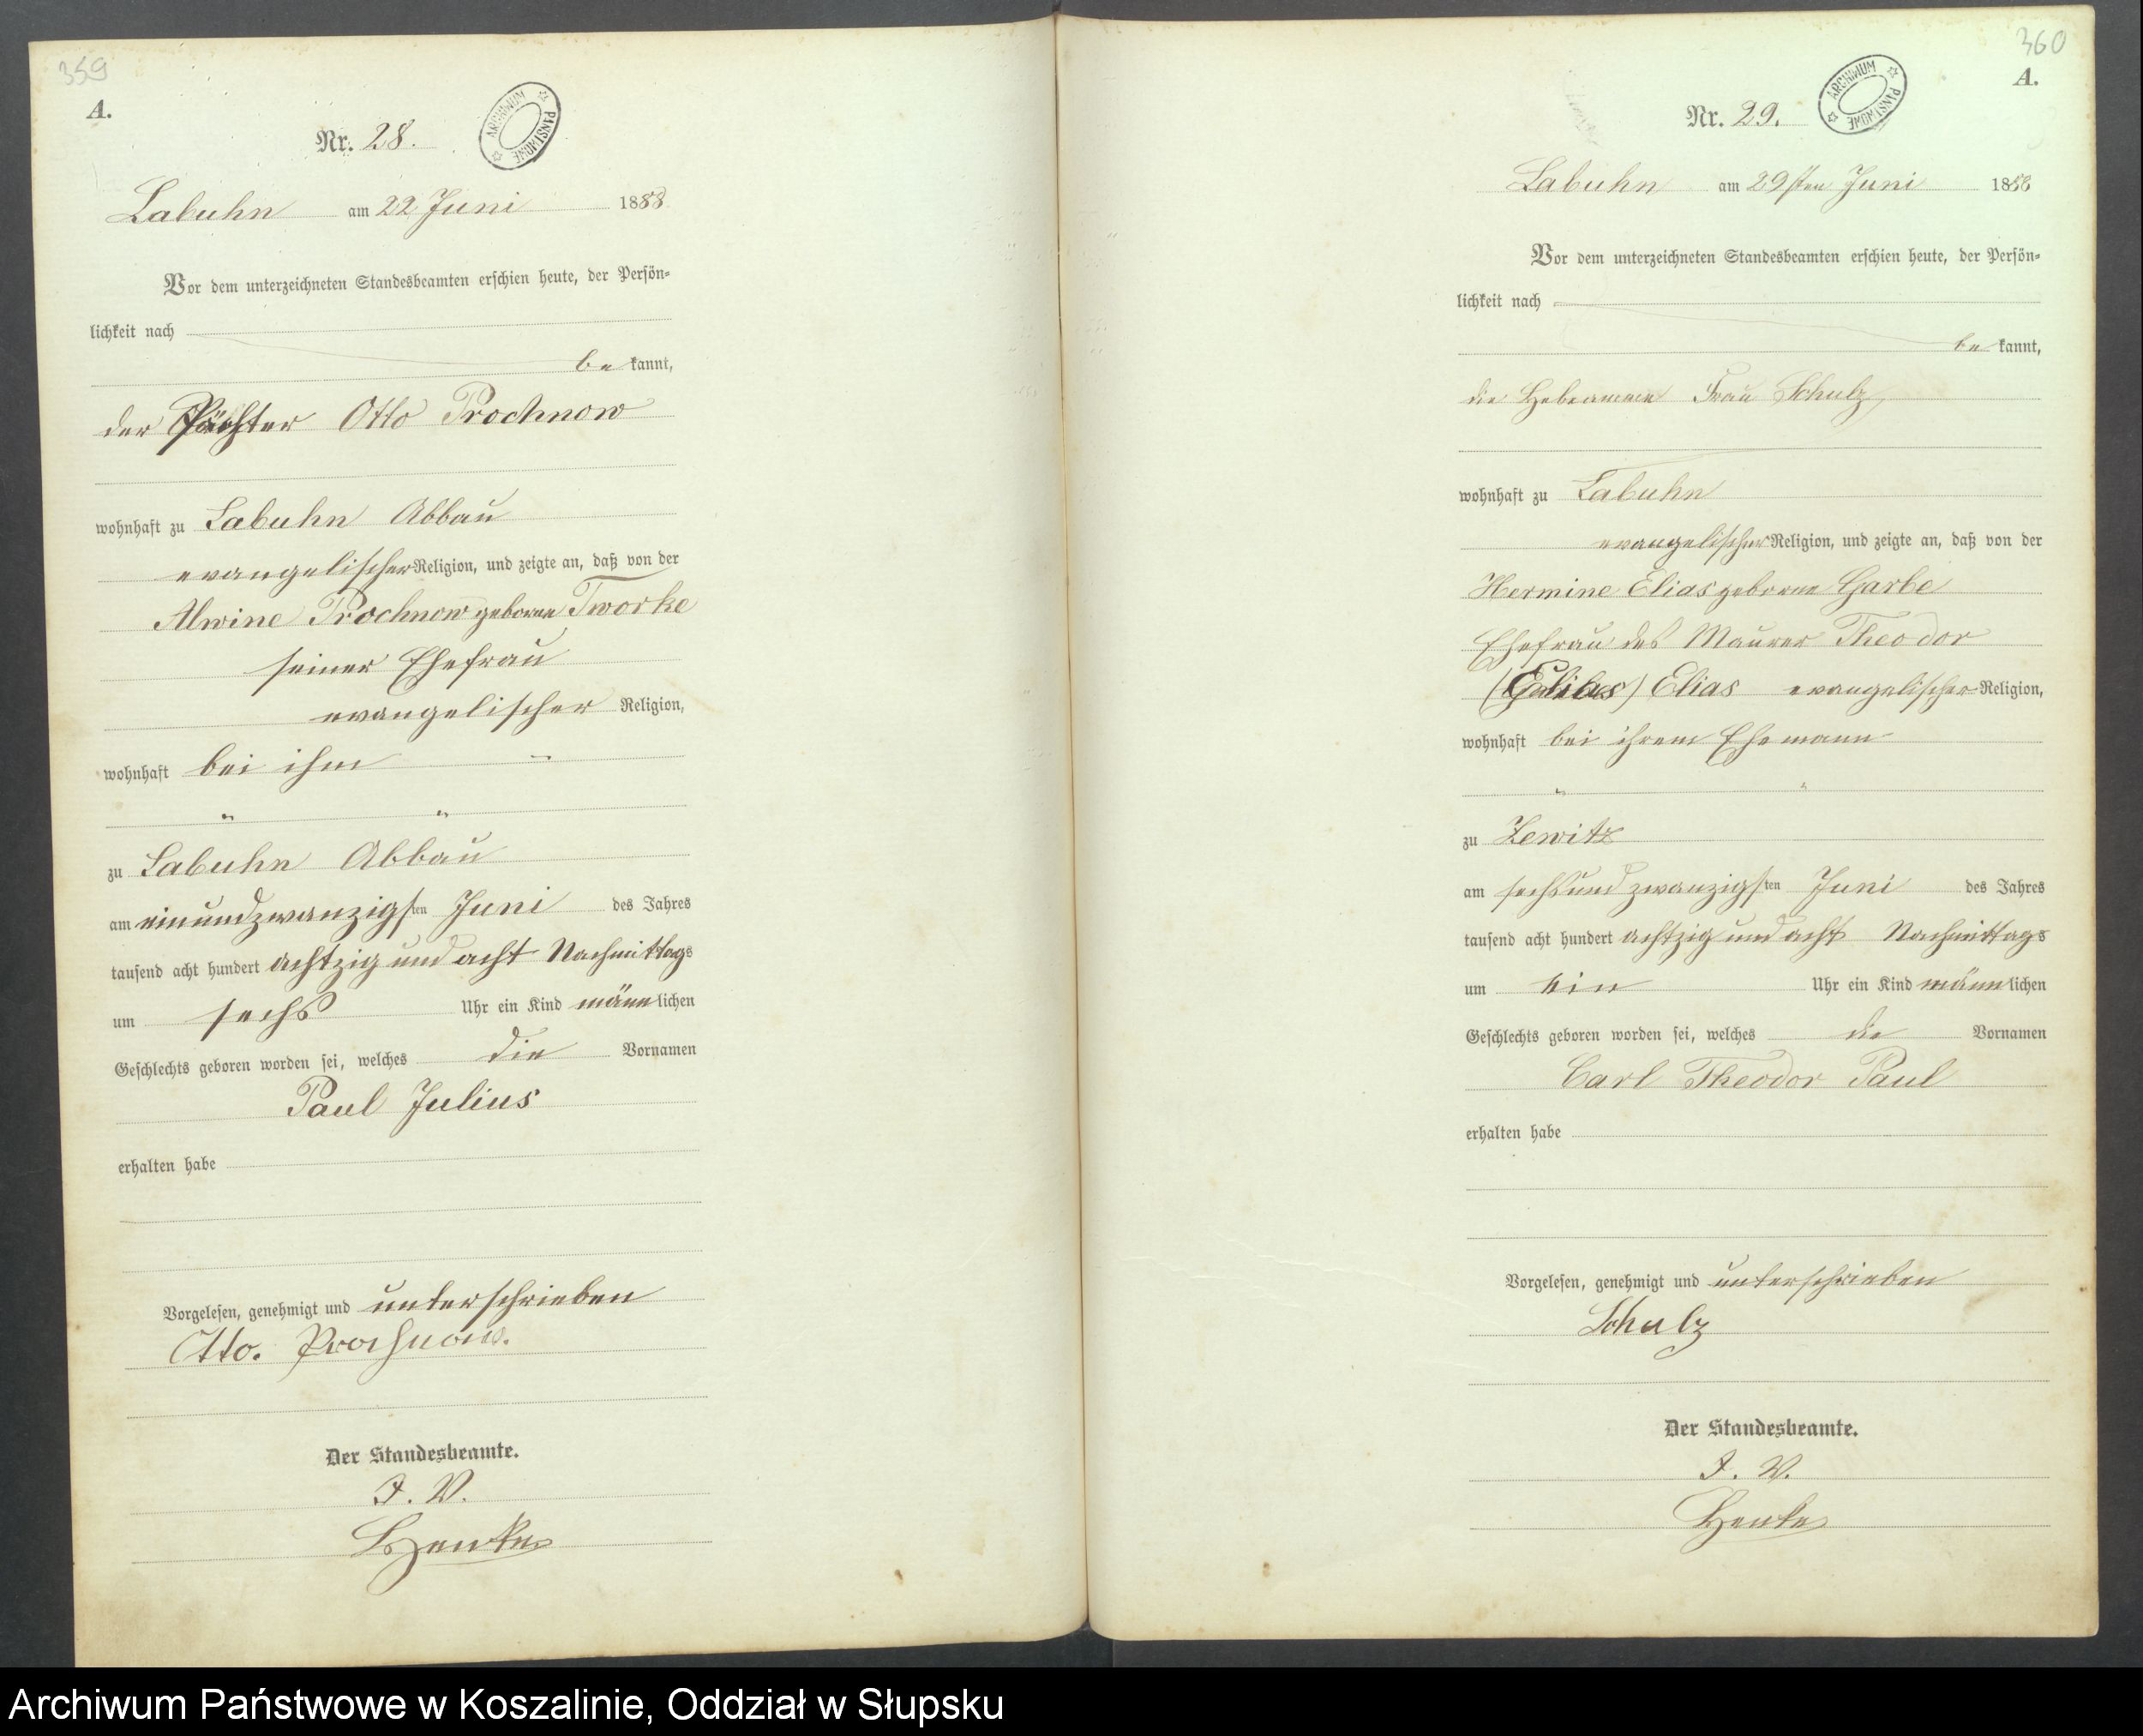 359
A.
Nr. 28.
ARCHIWUM PAŃSTWOWE
Labuhn am 22 Juni 1888
Vor dem unterzeichneten Standesbeamten erschien heute, der Persön=
lichkeit nach
be kannt,
der Pächter Otto Prochnow
wohnhaft zu Labuhn Abbau
evangelischer Religion, und zeigte an, daß von der
Alwine Prochnow geborne Tworke
seiner Ehefrau
evangelischer Religion,
wohnhaft bei ihm
zu Labuhn Abbau
am einundzwanzigsten Juni des Jahres
tausend acht hundert achtzig und acht Nachmittags
um sechs Uhr ein Kind männlichen
Geschlechts geboren worden sei, welches die Vornamen
Paul Julius
erhalten habe
Vorgelesen, genehmigt und unterschrieben
Otto. Prochnow.
Der Standesbeamte.
I. V.
Henke
360
A.
Nr. 29.
ARCHIWUM PAŃSTWOWE
Labuhn am 29sten Juni 1888
Vor dem unterzeichneten Standesbeamten erschien heute, der Persön=
lichkeit nach
be kannt,
die Hebeamme Frau Schulz
wohnhaft zu Labuhn
evangelischer Religion, und zeigte an, daß von der
Hermine Elias geborne Garbe
Ehefrau des Maurer Theodor
Elias evangelischer Religion,
wohnhaft bei ihrem Ehemann
zu Zewitz
am sechsundzwanzigsten Juni des Jahres
tausend acht hundert achtzig und acht Nachmittags
um ein Uhr ein Kind männlichen
Geschlechts geboren worden sei, welches die Vornamen
Carl Theodor Paul
erhalten habe
Vorgelesen, genehmigt und unterschrieben
Schulz
Der Standesbeamte.
I. V.
Henke
Archiwum Państwowe w Koszalinie, Oddział w Słupsku